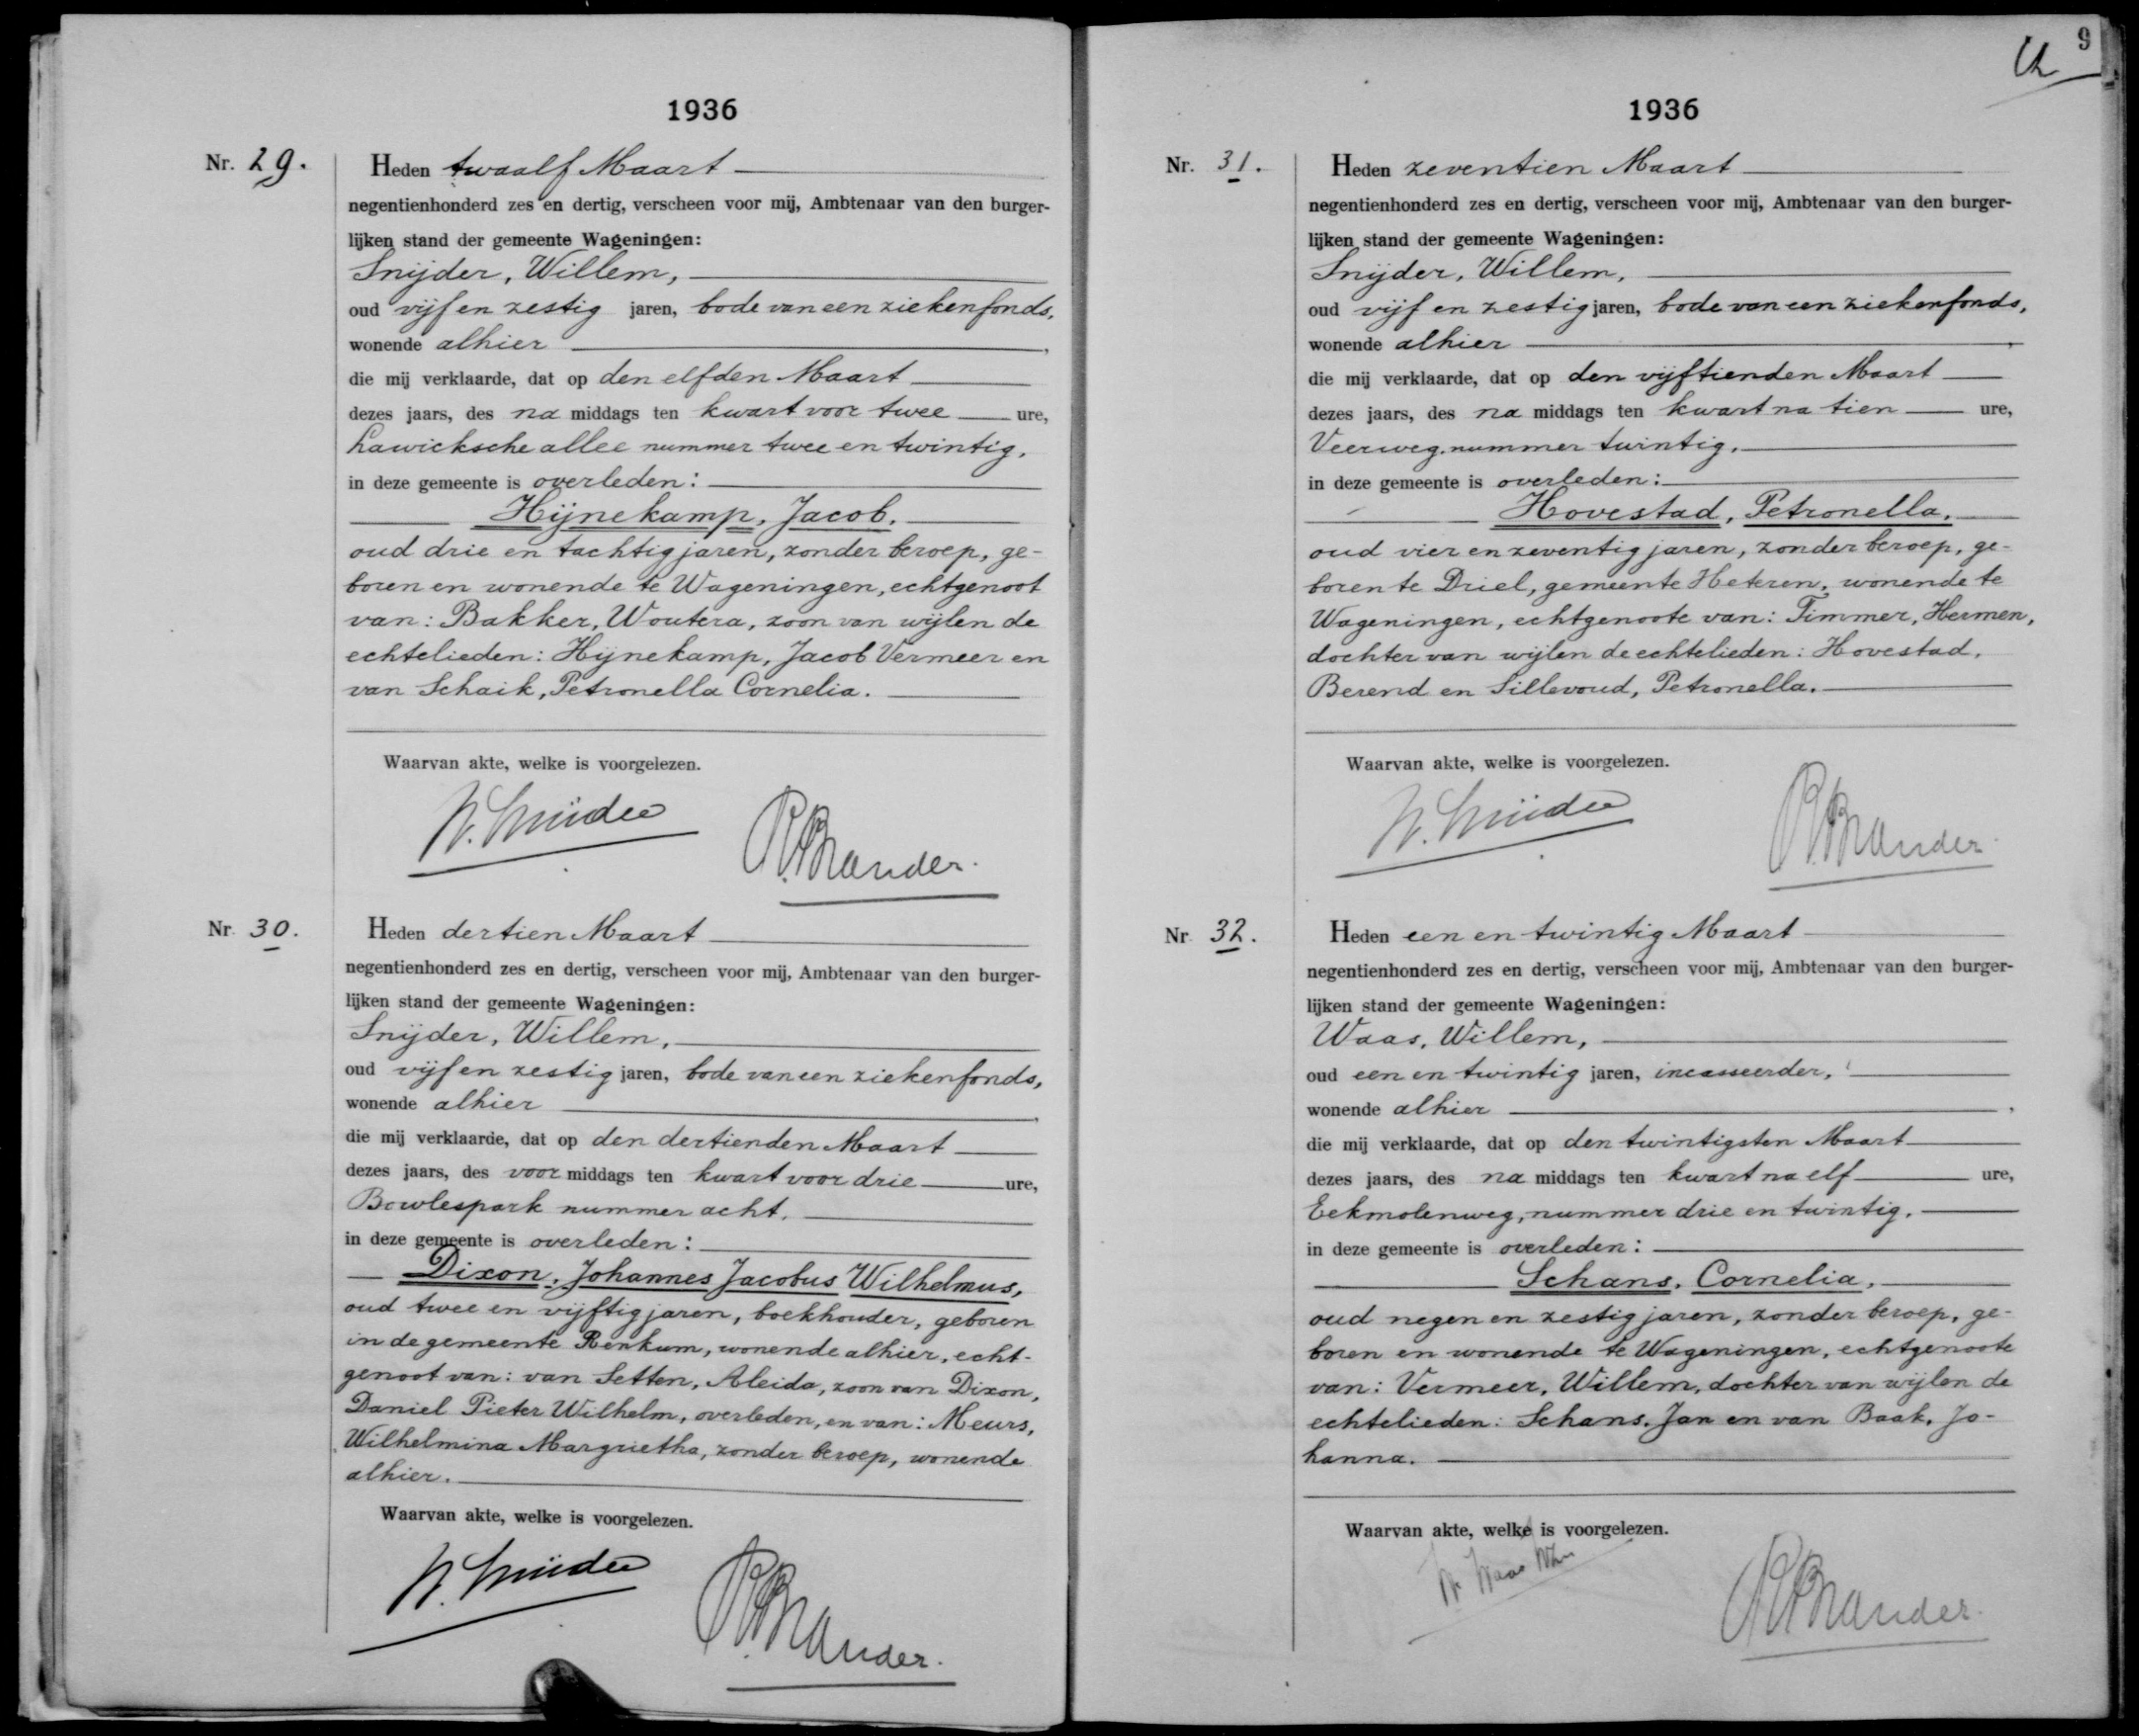 1936
Nr. 29.
Heden twaalf Maart
negentienhonderd zes en dertig, verscheen voor mij, Ambtenaar van den burger-
lijken stand der gemeente Wageningen:
Snijder, Willem,
oud vijf en zestig jaren, bode van een ziekenfonds,
wonende alhier,
die mij verklaarde, dat op den elfden Maart
dezes jaars, des na middags ten kwart voor twee ure,
Lawicksche allee nummer twee en twintig,
in deze gemeente is overleden:
Hijnekamp, Jacob,
oud drie en tachtig jaren, zonder beroep, ge-
boren en wonende te Wageningen, echtgenoot
van: Bakker, Woutera, zoon van wijlen de
echtelieden: Hijnekamp, Jacob Vermeer en
van Schaik, Petronella Cornelia.
Waarvan akte, welke is voorgelezen.
W. Snijder
Brander.
Nr. 30.
Heden dertien Maart
negentienhonderd zes en dertig, verscheen voor mij, Ambtenaar van den burger-
lijken stand der gemeente Wageningen:
Snijder, Willem,
oud vijf en zestig jaren, bode van een ziekenfonds,
wonende alhier,
die mij verklaarde, dat op den dertienden Maart
dezes jaars, des voor middags ten kwart voor drie ure,
Bowlespark nummer acht,
in deze gemeente is overleden:
Dixon, Johannes Jacobus Wilhelmus,
oud twee en vijftig jaren, boekhouder, geboren
in de gemeente Renkum, wonende alhier, echt-
genoot van: van Setten, Aleida, zoon van Dixon,
Daniel Pieter Wilhelm, overleden, en van: Meurs,
Wilhelmina Margrietha, zonder beroep, wonende
alhier.
Waarvan akte, welke is voorgelezen.
W. Snijder
Brander.
9
1936
Nr. 31.
Heden zeventien Maart
negentienhonderd zes en dertig, verscheen voor mij, Ambtenaar van den burger-
lijken stand der gemeente Wageningen:
Snijder, Willem,
oud vijf en zestig jaren, bode van een ziekenfonds,
wonende alhier,
die mij verklaarde, dat op den vijftienden Maart
dezes jaars, des na middags ten kwart na tien ure,
Veerweg nummer twintig,
in deze gemeente is overleden:
Hovestad, Petronella,
oud vier en zeventig jaren, zonder beroep, ge-
boren te Driel, gemeente Heteren, wonende te
Wageningen, echtgenoote van: Timmer, Hermen,
dochter van wijlen de echtelieden: Hovestad,
Berend en Sillevoud, Petronella.
Waarvan akte, welke is voorgelezen.
W. Snijder
Brander.
Nr. 32.
Heden een en twintig Maart
negentienhonderd zes en dertig, verscheen voor mij, Ambtenaar van den burger-
lijken stand der gemeente Wageningen:
Waas, Willem,
oud een en twintig jaren, incasseerder,
wonende alhier,
die mij verklaarde, dat op den twintigsten Maart
dezes jaars, des na middags ten kwart na elf ure,
Eekmolenweg, nummer drie en twintig,
in deze gemeente is overleden:
Schans, Cornelia,
oud negen en zestig jaren, zonder beroep, ge-
boren en wonende te Wageningen, echtgenoote
van: Vermeer, Willem, dochter van wijlen de
echtelieden: Schans, Jan en van Baak, Jo-
hanna.
Waarvan akte, welke is voorgelezen.
W Waas
Brander.